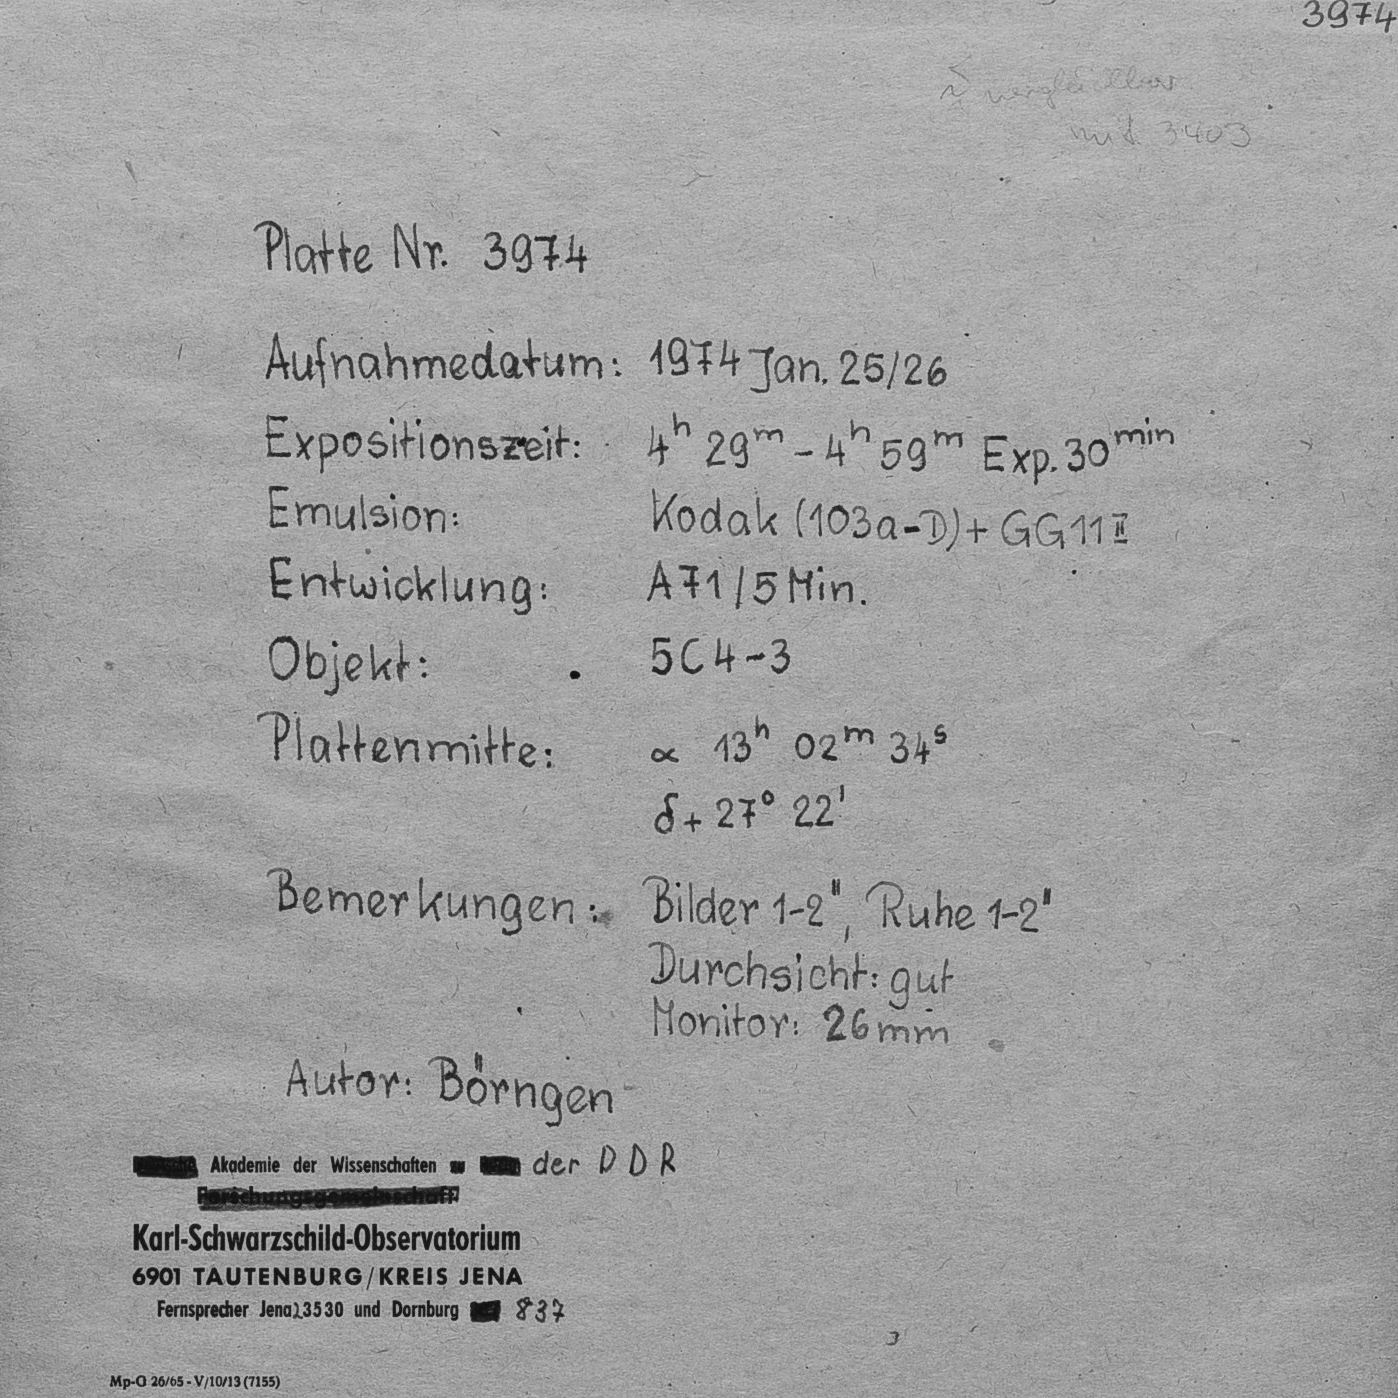 3974
vergleichbar
mit 3403
Platte Nr. 3974
Aufnahmedatum: 1974 Jan. 25/26
Expositionszeit: 4ʰ 29ᵐ – 4ʰ 59ᵐ Exp. 30ᵐⁱⁿ
Emulsion: Kodak (103a-D) + GG11 II
Entwicklung: A71/5 Min.
Objekt: 5C4-3
Plattenmitte: α 13ʰ 02ᵐ 34ˢ
δ + 27° 22'
Bemerkungen: Bilder 1-2", Ruhe 1-2"
Durchsicht: gut
Monitor: 26mm
Autor: Börngen
Akademie der Wissenschaften der DDR
Forschungsgemeinschaft
Karl-Schwarzschild-Observatorium
6901 TAUTENBURG/KREIS JENA
Fernsprecher Jena 23530 und Dornburg 837
Mp-G 26/65 - V/10/13 (7155)